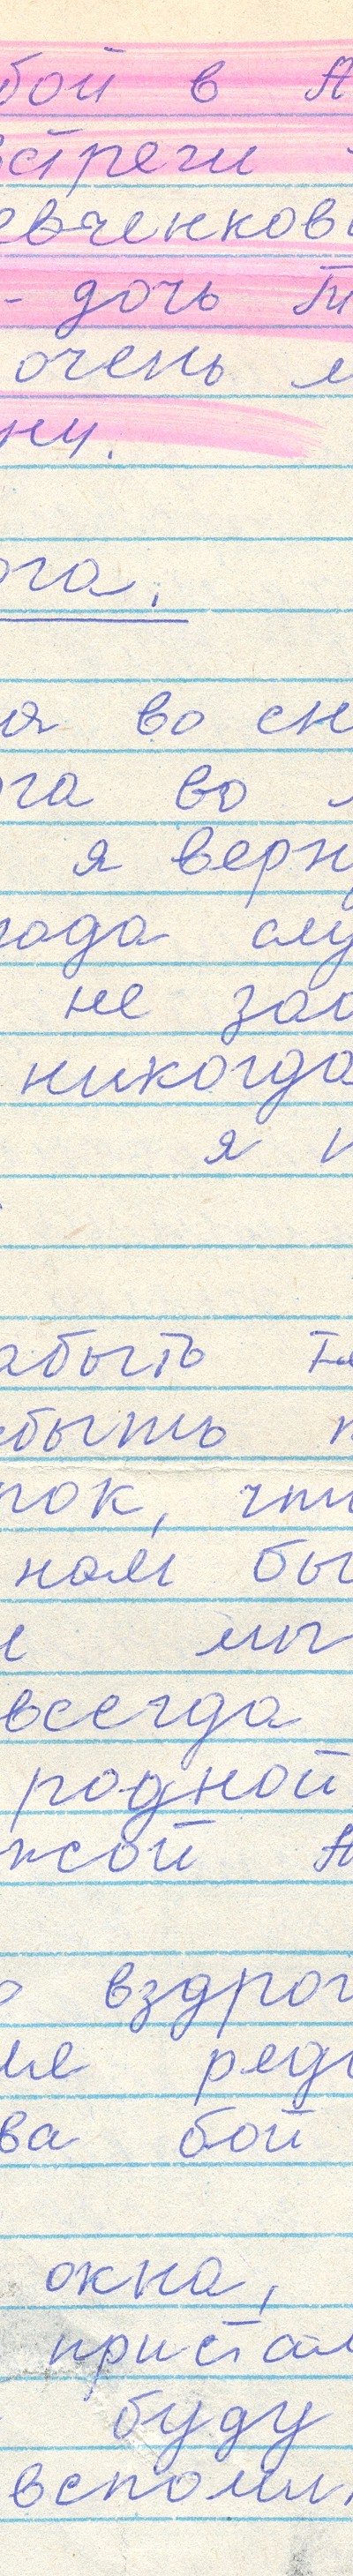 бой в А
встречи
евченков
- дочь Т
очень м
ну.
ога.
ия во сн
ога во
я верн
года слу
не заб
никогда
я
абыть те
быть
ток, что
нам бы
мы
всегда
родной
жой А
вздрог
реде
ва бой
окна,
пристал
буду
вспомин